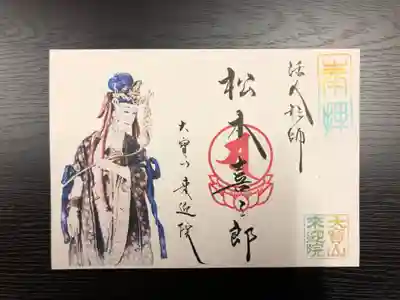 奉拝
活人形師
松本喜三郎
大宝山来迎院
大宝山
来迎院